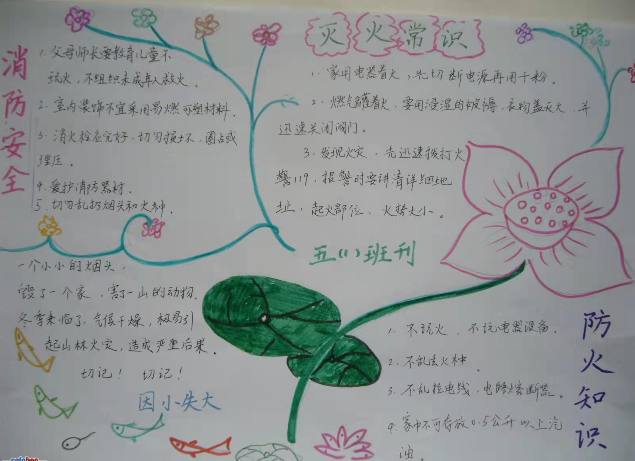 消防安全
1. 父母师长要教育儿童不
玩火，不组织未成年人救火。
2. 室内装饰不宜采用易燃可塑材料.
3. 消火栓在完好，切勿损坏、圈占或
埋压。
4. 爱护消防器材.
5. 切勿乱扔烟头和火种.
灭火常识
1. 家用电器着火，先切断电源再用干粉.
2. 燃气罐着火，要用浸湿的被褥、衣物盖灭火，并
迅速关闭阀门。
3. 发现火灾，先迅速拨打火
警119，报警时要讲清详细地
址、起火部位、火势大小。
五(1)班刊
一个小小的烟头，
毁了一个家，害了一山的动物.
冬季来临了，气候干燥，极易引
起山林火灾，造成严重后果。
切记！ 切记！
因小失大
防火知识
1. 不玩火、不玩电器设备.
2. 不乱丢火种.
3. 不乱拉电线，
4. 家中不可存放0.5公升以上汽
油.